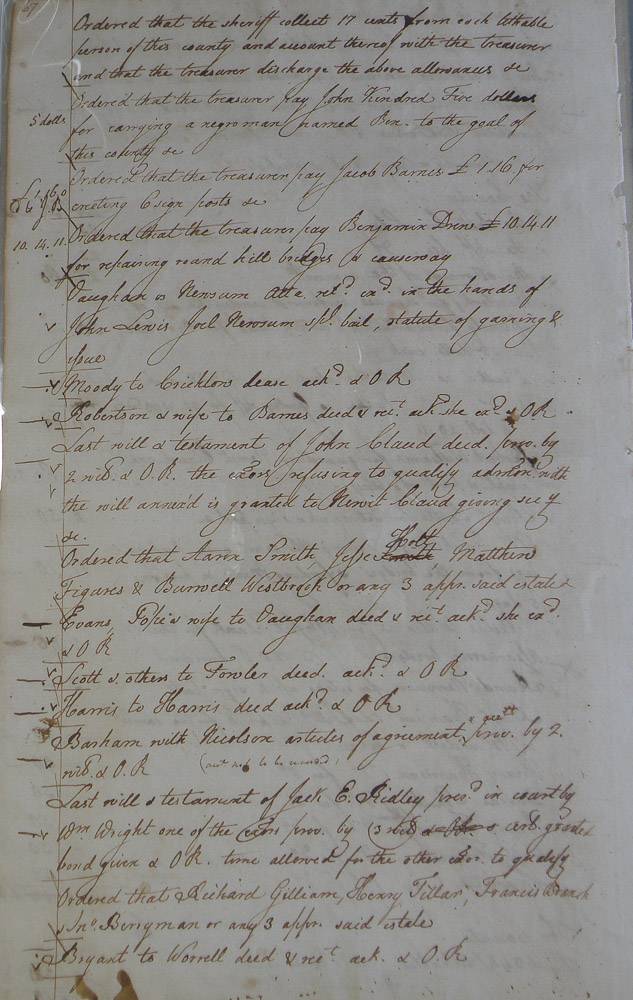 67
Ordered that the sheriff collect 17 cents from each tithable
person of this county and account thereof with the treasurer
and that the treasurer discharge the above allowances &c
Ordered that the treasurer pay John Kindred Five dollars
5 dolls.
for carrying a negro man named Ben. to the goal of
this county &c
Ordered that the treasurer pay Jacob Barnes £ 1.16. for
erecting 6 sign posts &c
Ordered that the treasurer pay Benjamin Drew £ 10.14.11
10. 14. 11.
for repairing round hill bridges & causeway
Vaughan vs Newsum Atta. retd. exd. in the hands of
John Lewis Joel Newsum spl. bail, statute of gaming &
issue
Moody to Cricklow lease ackd. & O R
Robertson & wife to Barnes deed & rect. ack. she exd. & O R
Last will & testament of John Claud decd. prov. by
2 wits. & O.R. the exors refusing to qualify admon. with
the will annex'd is granted to Newit Claud giving secy
&c.
Ordered that Aaron Smith, Jesse Smith Holt, Matthew
Figures & Burwell Westbrook or any 3 appr. said estate
Evans, Pope & wife to Vaughan deed & rect. ackd. she exd.
& O R
Scott & others to Fowler deed. ackd. & O R
Harris to Harris deed ackd. & O R
Barham with Nicolson articles of agreement, & prov. by 2.
wits. & O. R
Last will & testament of Jack E. Ridley presd. in court by
Wm. Wright one of the exors prov. by (3 wits) & O R & cert. granted
bond given & O R. time allowed for the other exor. to qualify
Ordered that Richard Gilliam, Henry Tillar, Francis Branch
& Jno. Berryman or any 3 appr. said estate
Bryant to Worrell deed & rect. ack. & O. R